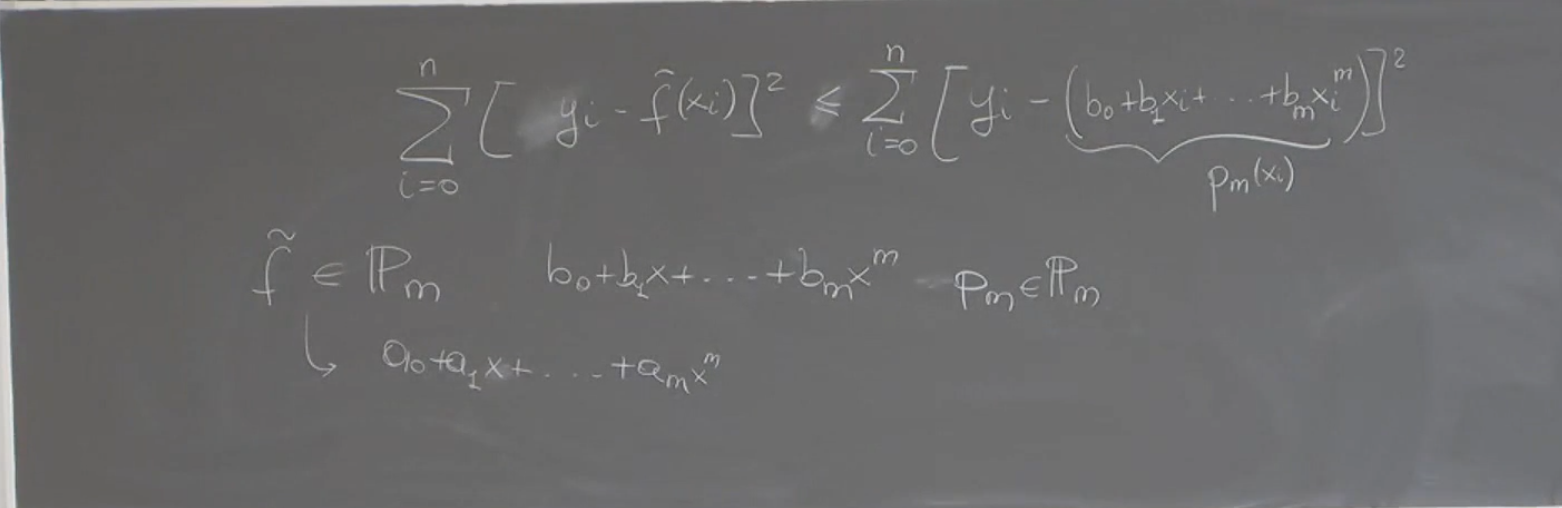 $\sum_{i=0}^{n} [y_i - \tilde{f}(x_i)]^2 \leq \sum_{i=0}^{n} [y_i - \underbrace{(b_0 + b_1 x_i + \cdots + b_m x_i^m)}_{p_m(x_i)}]^2$
$\tilde{f} \in \mathbb{P}_m \quad b_0 + b_1 x + \ldots + b_m x^m \quad p_m \in \mathbb{P}_m$
$\hookrightarrow a_0 + a_1 x + \ldots + a_m x^m$